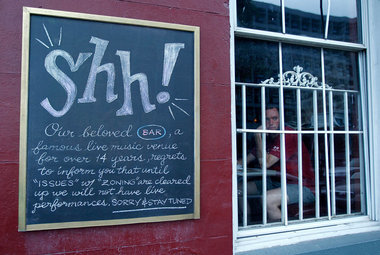 Shh!
Our beloved BAR, a
famous live music venue
for over 14 years, regrets
to inform you that until
"ISSUES" w/ "ZONING" are cleared
up we will not have live
performances. SORRY & STAY TUNED